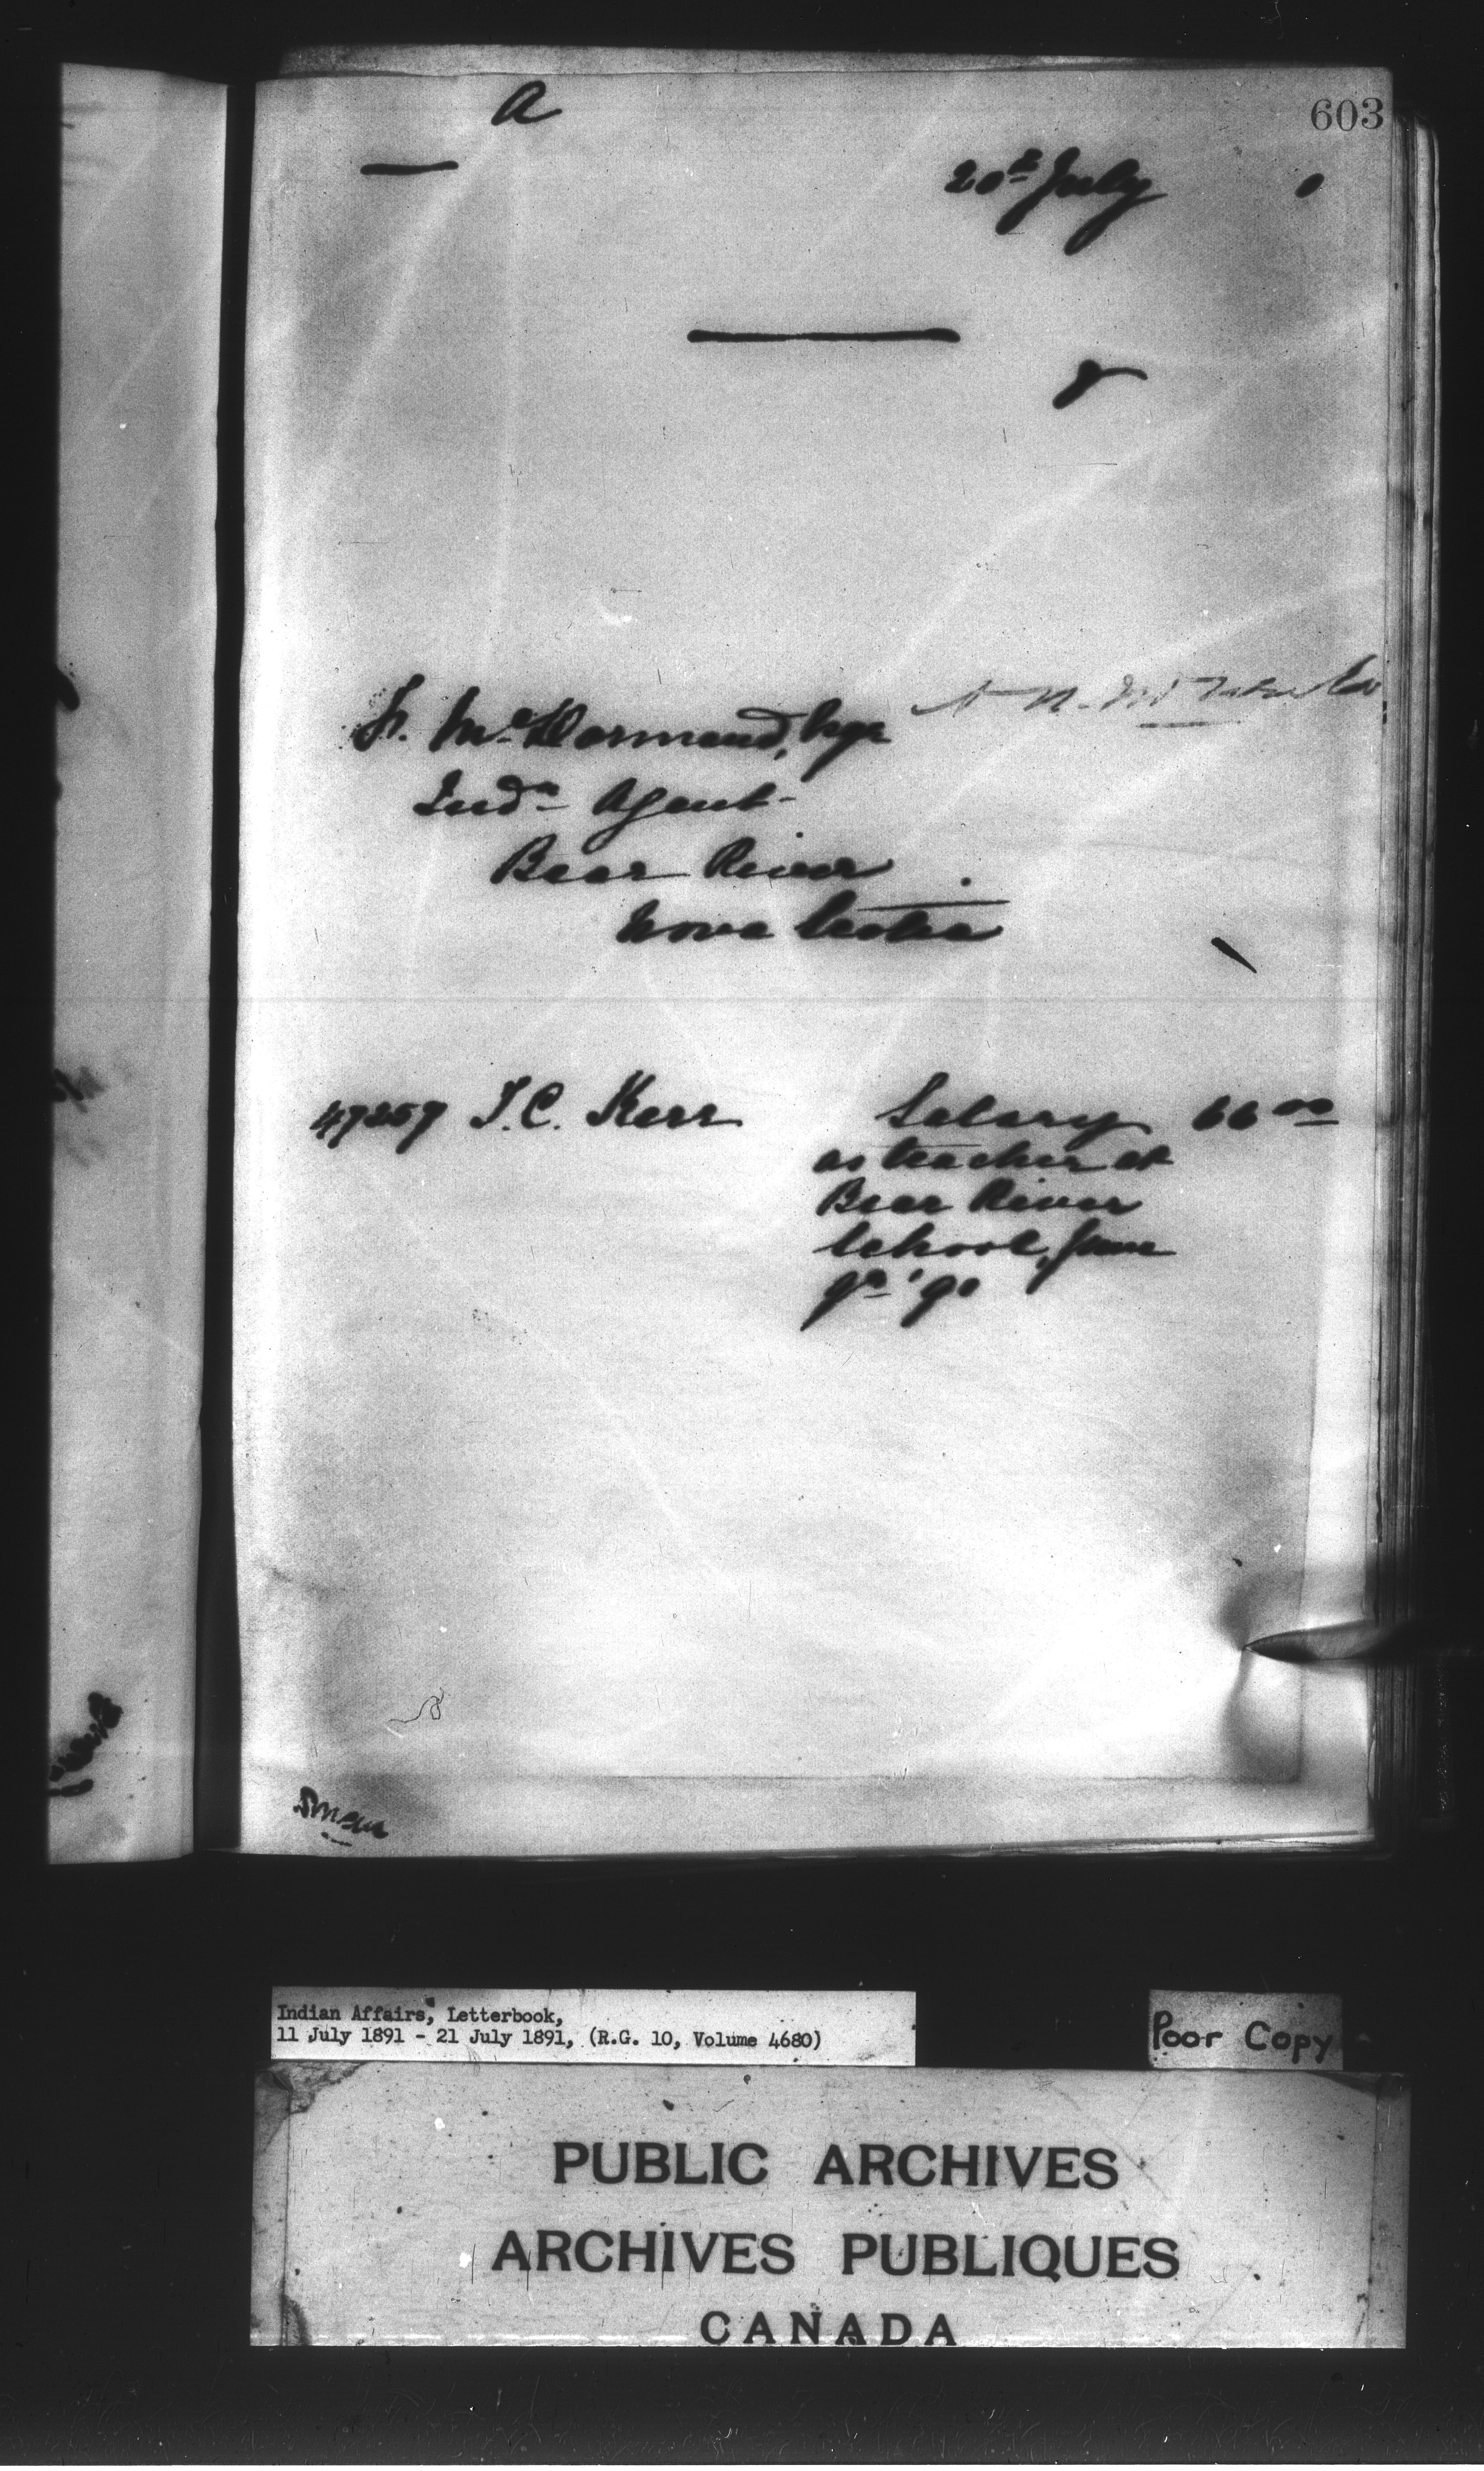 a
603
20th July
F. McDormand, Esqr
Indn Agent
Bear River
Nova Scotia
47257 J.C. Kerr Salary 66 00
as teacher at
Bear River
School, June
qr '91
Indian Affairs, Letterbook,
11 July 1891 - 21 July 1891, (R.G. 10, Volume 4680)
Poor Copy
PUBLIC ARCHIVES
ARCHIVES PUBLIQUES
CANADA